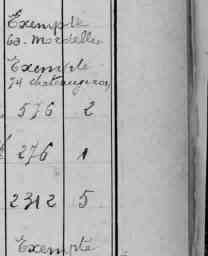 Exempte
63. Mardelles
Exempte
74 chateaugiron
576 2
276 1
2312 5
Exempte